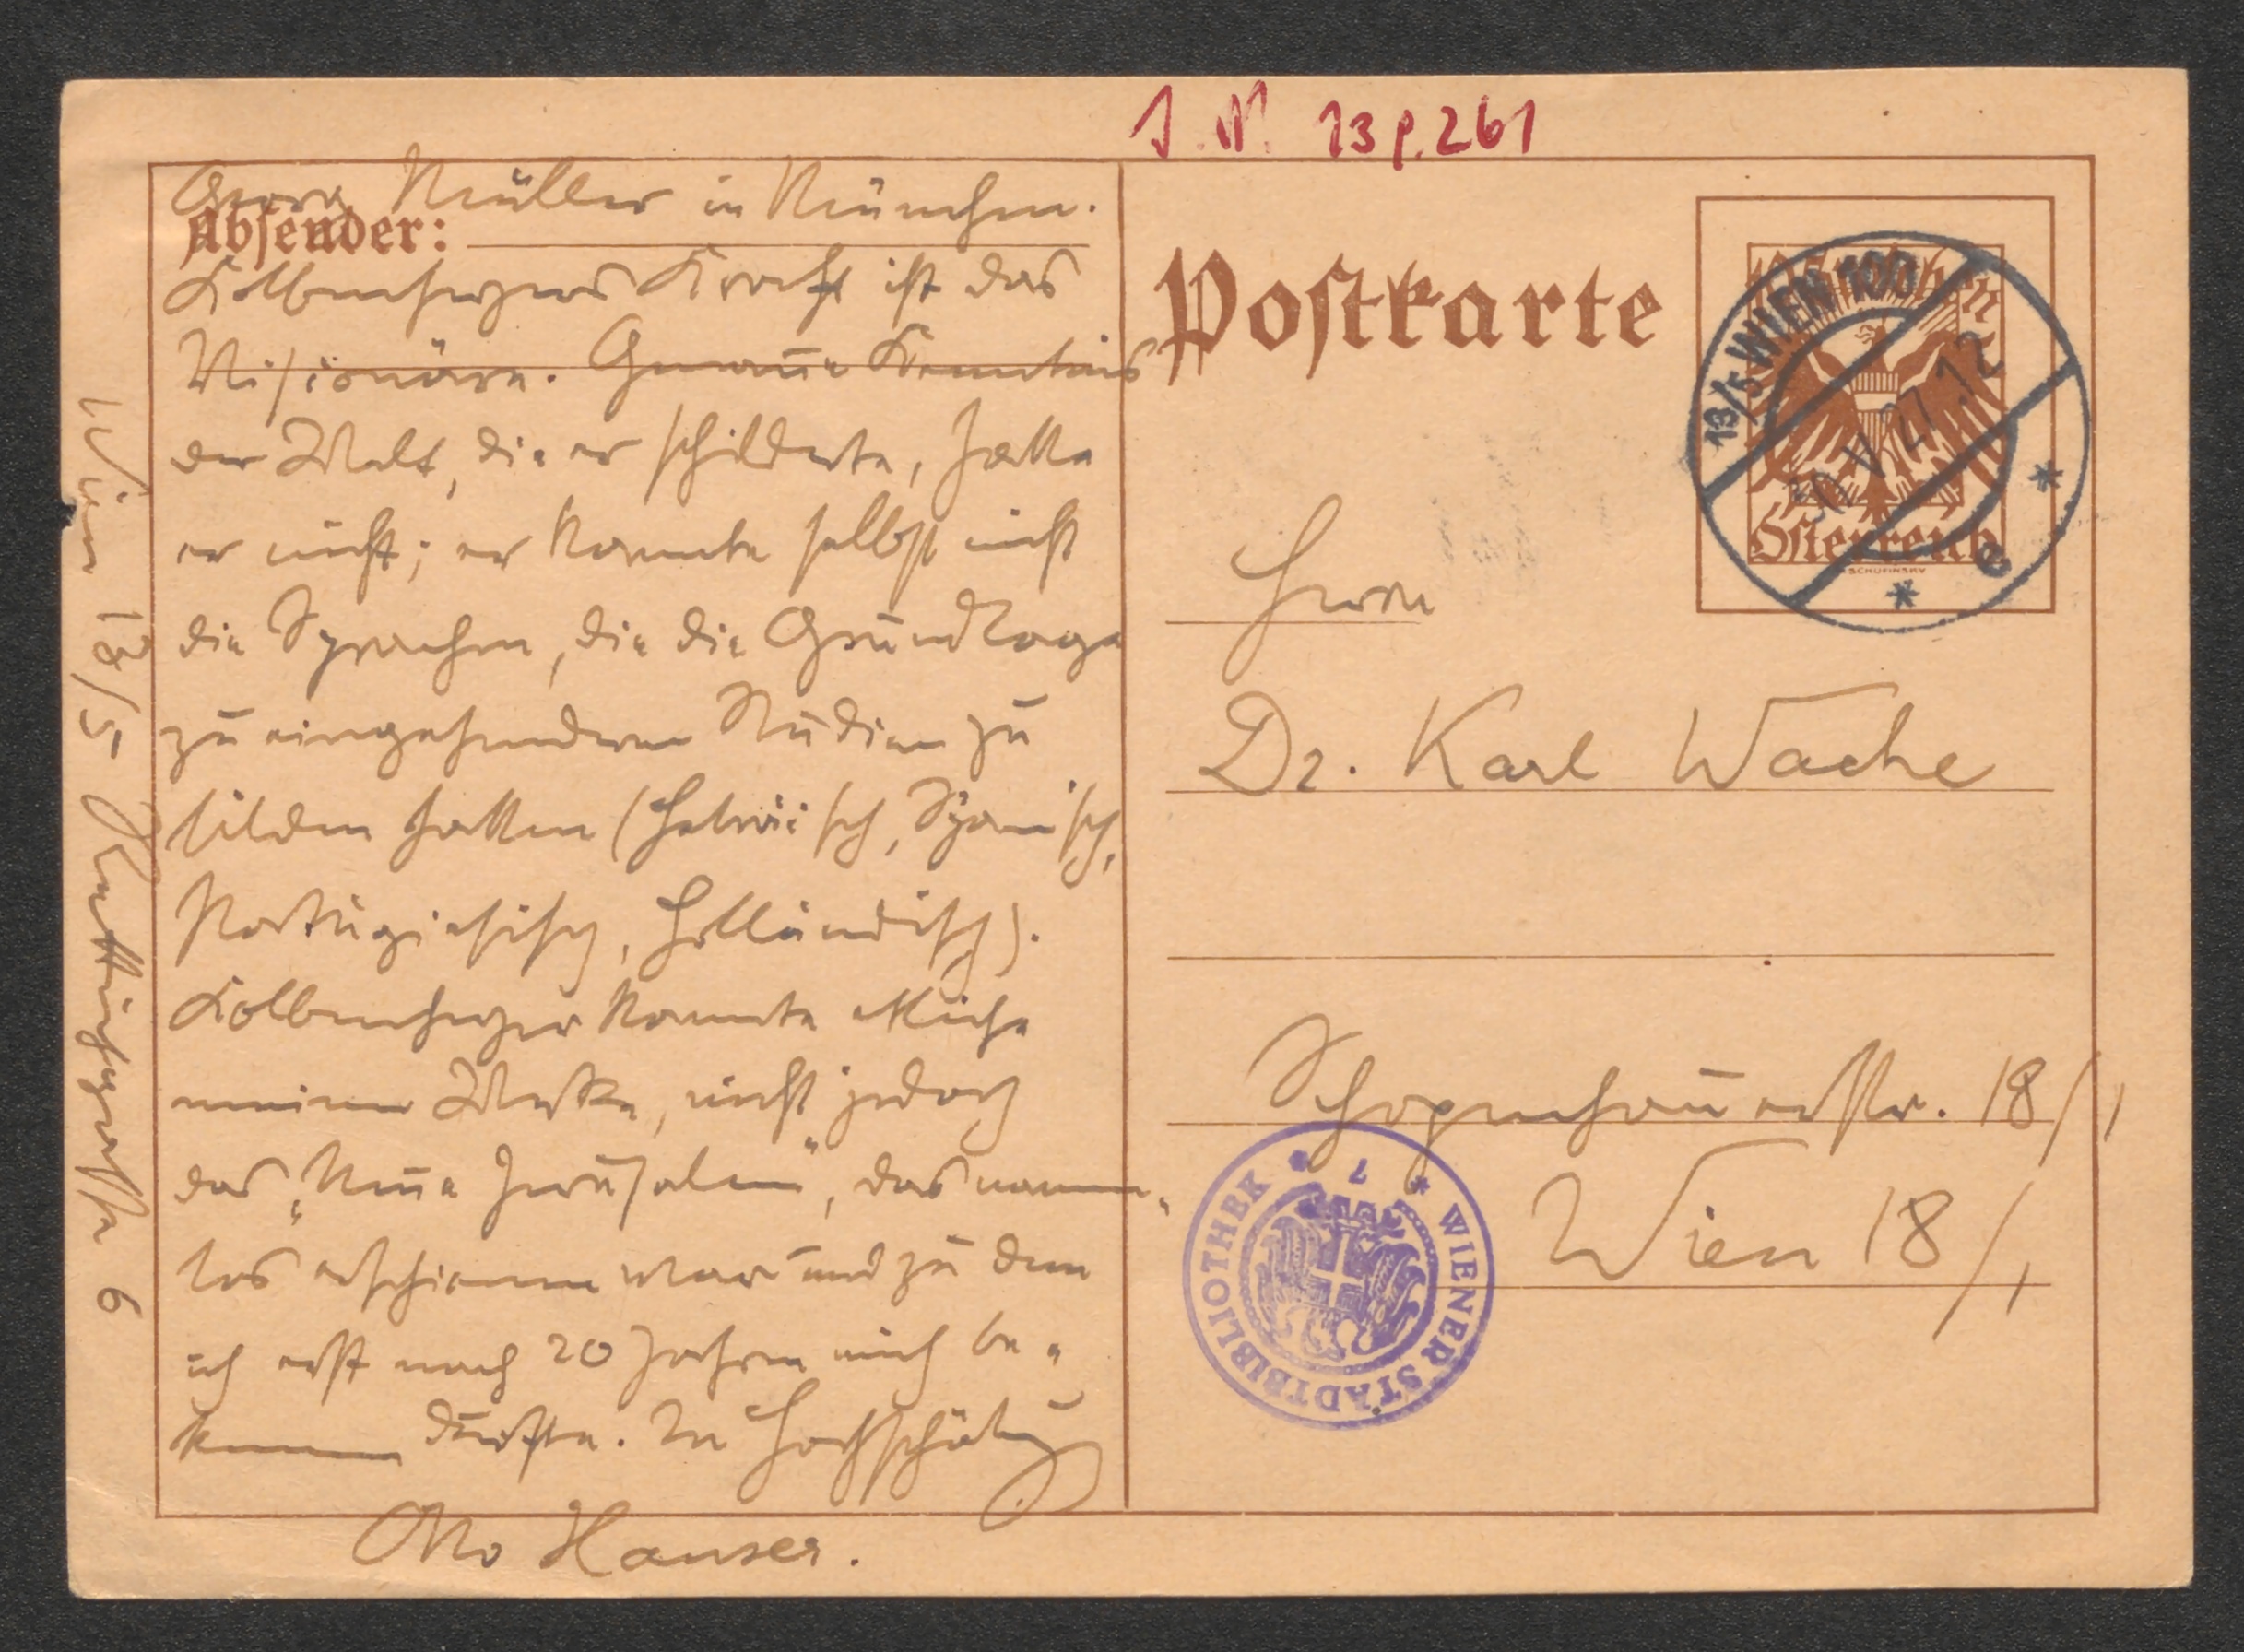 I. N. 138.261
Georg Müller in München.
Absender:
Kolbenheyers Kraft ist das
Visionäre. Genaue Kenntnis
der Welt, die er schilderte, hatte
er nicht; er kannte selbst nicht
die Sprachen, die die Grundlage
zu eingehenderen Studien zu
bilden hatten (Hebräisch, Spanisch,
Portugiesisch, Holländisch).
Kolbenheyer kannte etliche
meiner Werke, nicht jedoch
das „Neue Jerusalem", das namen-
los erschienen war und zu dem
ich erst nach 20 Jahren mich be-
kennen durfte. In Hochschätzung
Otto Hauser.
Wien 13/5 6
Postkarte
Österreich
SCHUFINSKY
13/5 WIEN 100
30 V 27 12
* e *
Herrn
Dr. Karl Wache
Schopenhauerstr. 18/1
Wien 18/1
* WIENER STADTBIBLIOTHEK *
7